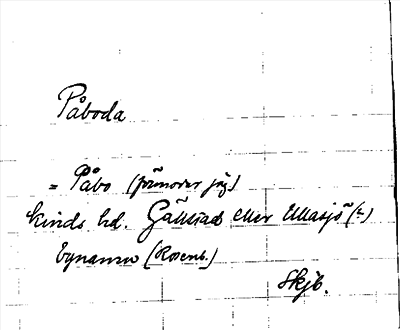 Påboda
= Påbo (förmodar jag)
Kinds hd. Gällstad eller Ullasjö (?)
bynamn (Rosenb.)
Skjb.